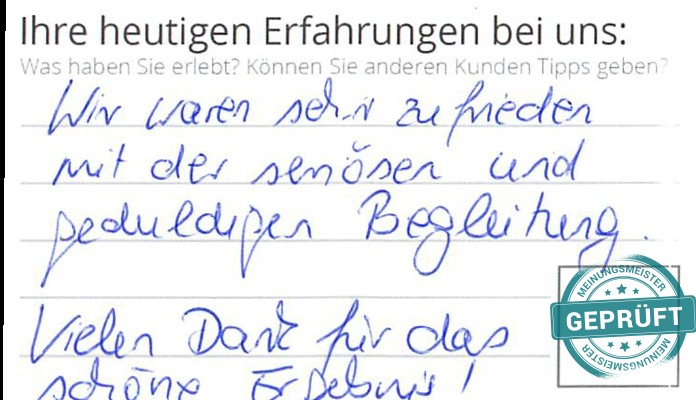 Ihre heutigen Erfahrungen bei uns:
Was haben Sie erlebt? Können Sie anderen Kunden Tipps geben?
Wir waren sehr zufrieden
mit der seriösen und
geduldigen Begleitung.
Vielen Dank für das
schöne Ergebnis!
MEINUNGSMEISTER
GEPRÜFT
MEINUNGSMEISTER